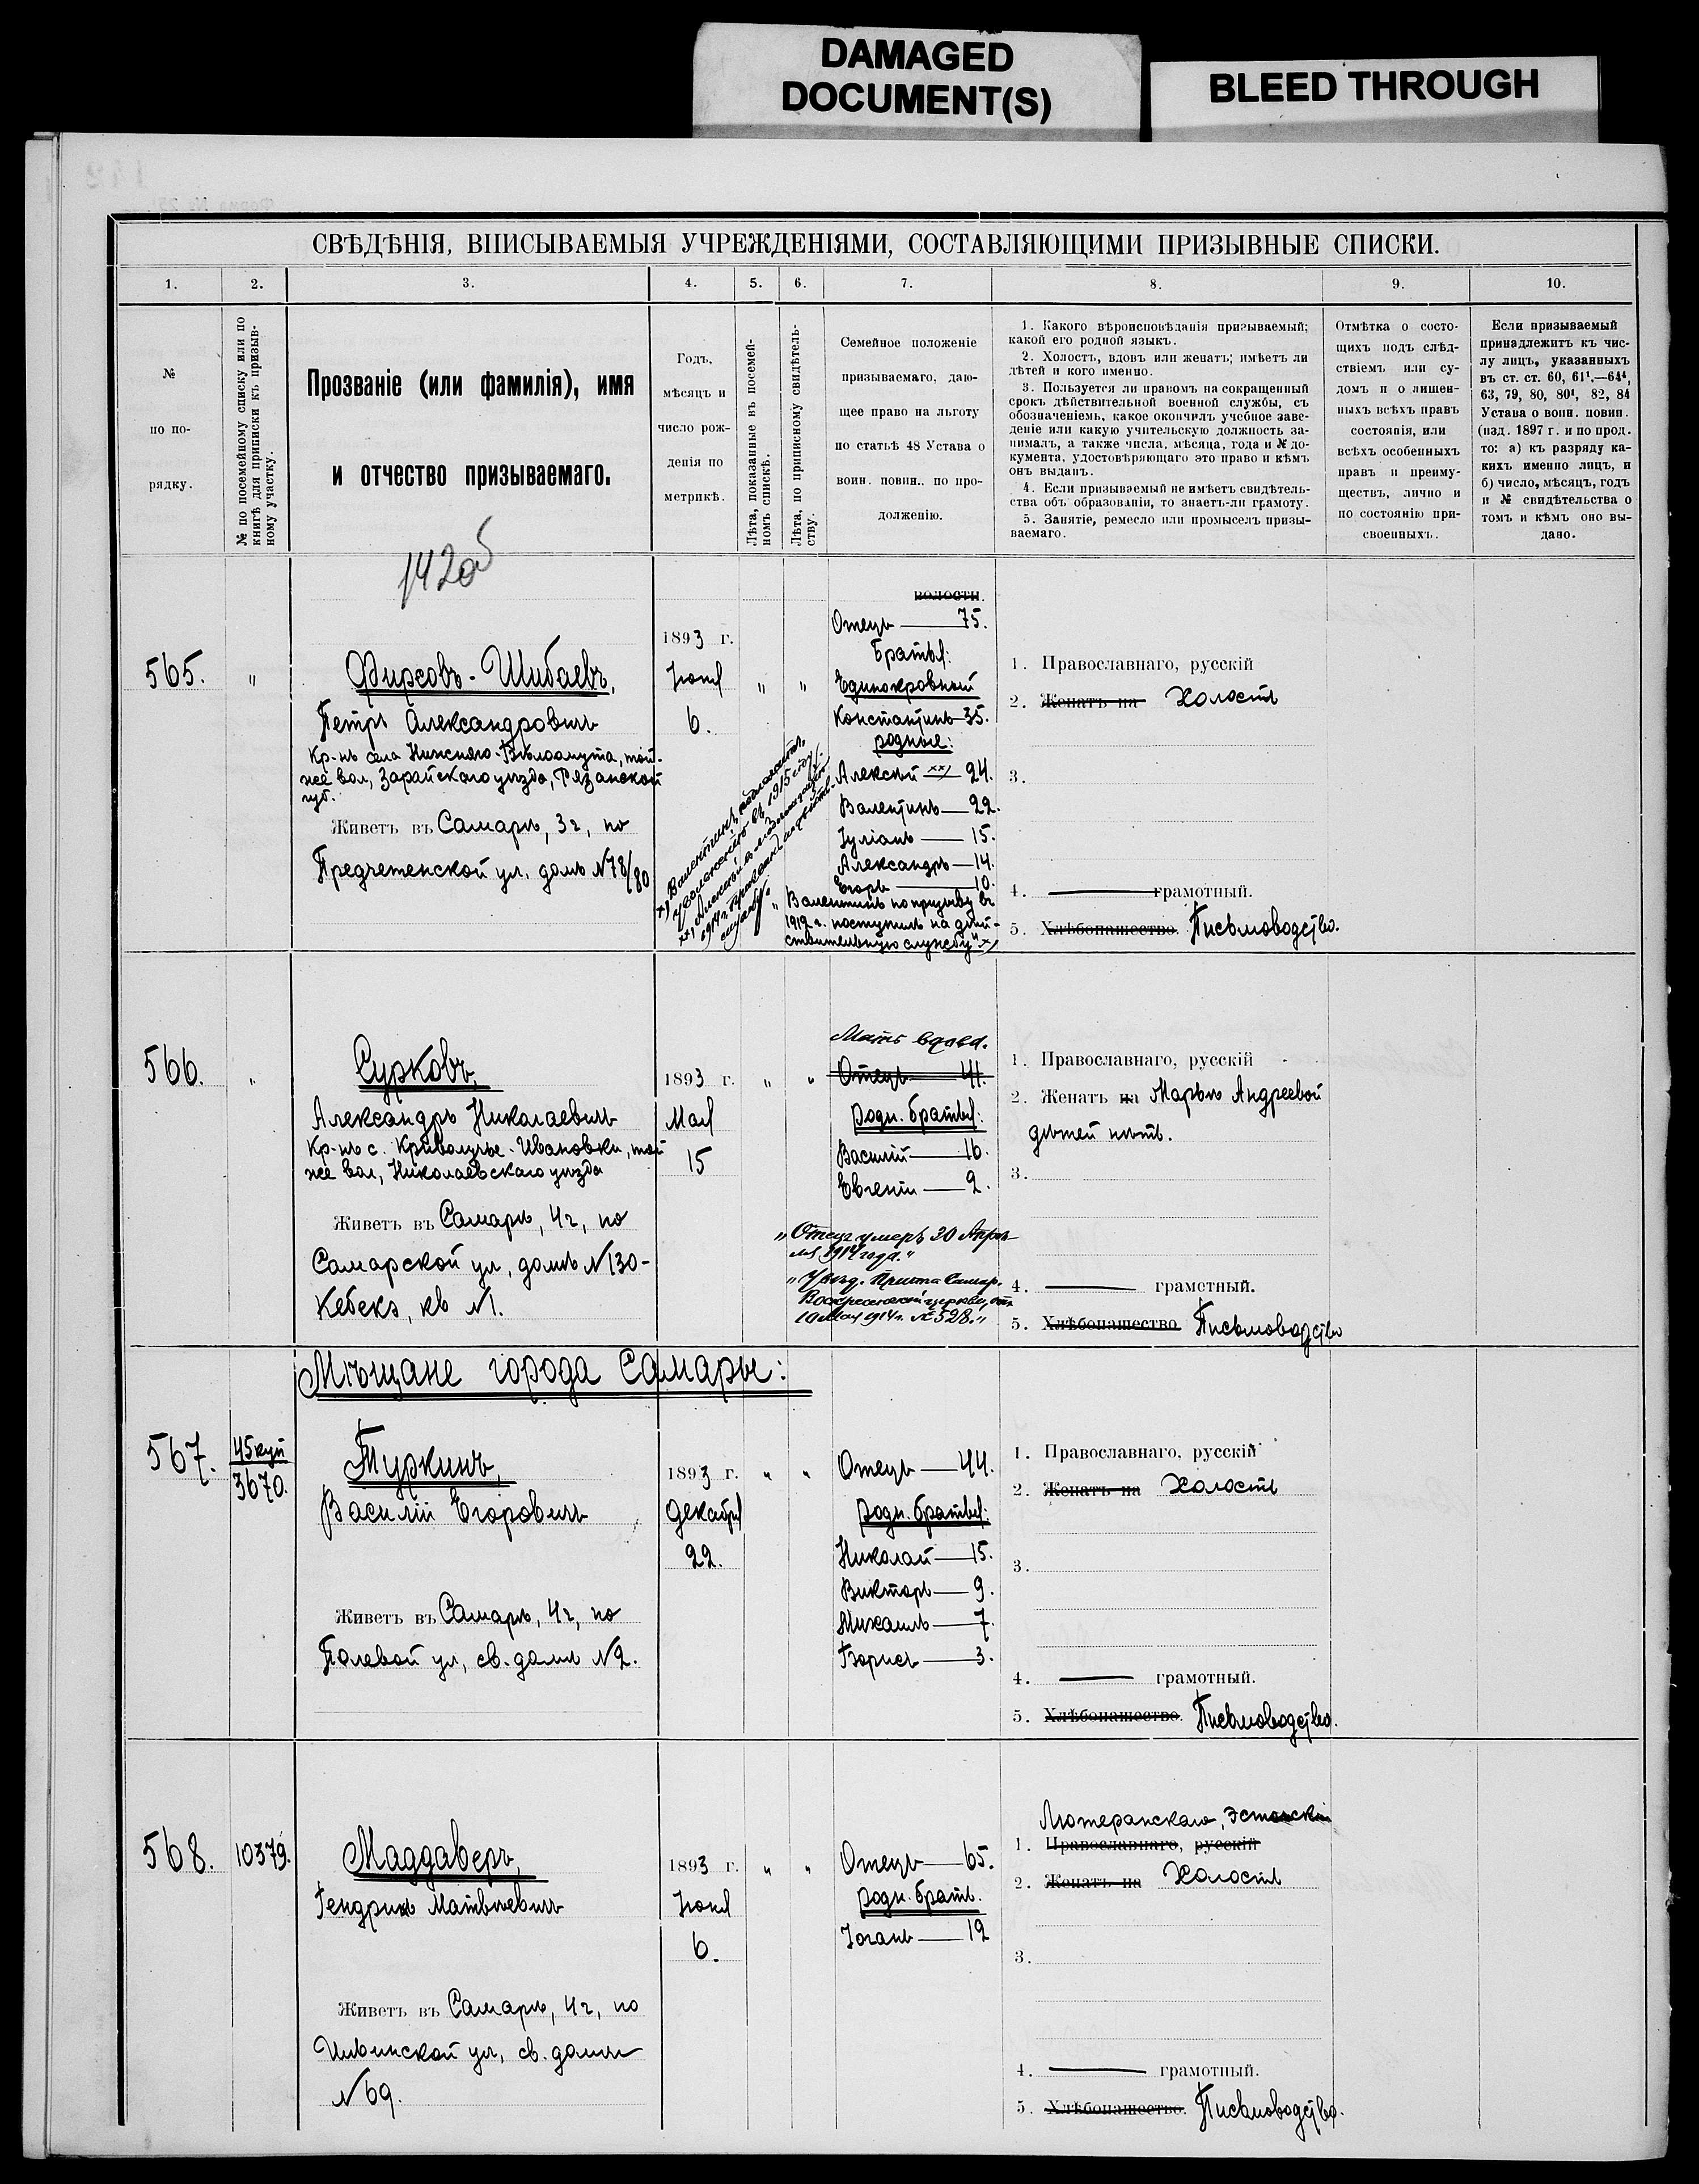 DAMAGED
DOCUMENT(S)
BLEED THROUGH
СВѢДѢНІЯ, ВПИСЫВАЕМЫЯ УЧРЕЖДЕНІЯМИ, СОСТАВЛЯЮЩИМИ ПРИЗЫВНЫЕ СПИСКИ.
1. 2. 3. 4. 5. 6. 7. 8. 9. 10.
№
по по-
рядку.
№ по посемейному списку или по
книгѣ для приписки къ призыв-
ному участку.
Прозваніе (или фамилія), имя
и отчество призываемаго.
Годъ,
мѣсяцъ и
число рож-
денія по
метрикѣ.
Лѣта, показанные въ посемей-
номъ спискѣ.
Лѣта, по приписному свидѣтель-
ству.
Семейное положеніе
призываемаго, даю-
щее право на льготу
по статьѣ 48 Устава о
воин. повин.. по про-
долженію.
1. Какого вѣроисповѣданія призываемый;
какой его родной языкъ.
2. Холостъ, вдовъ или женатъ; имѣетъ ли
дѣтей и кого именно.
3. Пользуется ли правомъ на сокращенный
срокъ дѣйствительной военной службы, съ
обозначеніемъ, какое окончилъ учебное заве-
деніе или какую учительскую должность за-
нималъ, а также числа, мѣсяца, года и № до-
кумента, удостовѣряющаго это право и кѣмъ
онъ выданъ.
4. Если призываемый не имѣетъ свидѣтель-
ства объ образованіи, то знаетъ-ли грамоту.
5. Занятіе, ремесло или промыселъ призы-
ваемаго.
Отмѣтка о состо-
щихъ подъ слѣд-
ствіемъ или су-
домъ и о лишен-
ныхъ всѣхъ правъ
состоянія, или
всѣхъ особенныхъ
правъ и преиму-
ществъ, лично и
по состоянію при-
своенныхъ.
Если призываемый
принадлежитъ къ чис-
лу лицъ, указанныхъ
въ ст. ст. 60, 61¹.—64⁴,
63, 79, 80, 80¹, 82, 84
Устава о воин. повин.
(изд. 1897 г. и по прод.
то: а) къ разряду ка-
кихъ именно лицъ, и
б) число, мѣсяцъ, годъ
и № свидѣтельства о
томъ и кѣмъ оно вы-
дано.
142об
565.
"
Фирсовъ-Шибаевъ,
Петръ Александровичъ
Кр-нъ села Нижняго-Бѣлоомута, той-
же вол, Зарайскаго уѣзда, Рязанской
губ.
Живетъ въ Самарѣ, 3ч, по
Предтеченской ул. домъ №78/80
1893 г.
Іюня
6.
" "
волости.
Отецъ — 75.
Братья:
Единокровный
Константинъ — 35.
родные:
Алексѣй xx) 24.
Валентинъ — 22.
Іуліанъ — 15.
Александръ — 14.
Егоръ — 10.
"Валентинъ по призыву въ
1912 г. поступилъ на дѣй-
ствительную службу" x)
1. Православнаго, русскій
2. Женатъ на Холостъ
3.
4. — грамотный.
5. Хлѣбопашество. Письмоводство.
566.
"
Сурковъ,
Александръ Николаевичъ
Кр-нъ с. Криволучье-Ивановки, той
же вол, Николаевскаго уѣзда
Живетъ въ Самарѣ, 4ч, по
Самарской ул, домъ №130-
Кебекъ, кв №1.
1893 г.
Мая
15
" "
Мать вдова.
Отецъ — 41.
родн. братья:
Василій — 16.
Евгеній — 2.
"Отецъ умеръ 30 Апрѣ-
ля 1914 года."
"Увѣд. Причта Самар.
Воскресенской церкви, отъ
10 Мая 1914 г. № 528."
1. Православнаго, русскій
2. Женатъ на Марьѣ Андреевой
дѣтей нѣтъ.
3.
4. — грамотный.
5. Хлѣбопашество Письмоводство
Мѣщане города Самары:
567.
3670.
Туркинъ,
Василій Егоровичъ
Живетъ въ Самарѣ, 4ч, по
Полевой ул, св. домъ №2.
1893 г.
Декабря
22.
" "
Отецъ — 44.
родн. братья:
Николай — 15.
Викторъ — 9.
Михаилъ — 7.
Борисъ — 3.
1. Православнаго, русскій
2. Женатъ на Холостъ
3.
4. — грамотный.
5. Хлѣбопашество. Письмоводство.
568.
10379.
Маддаверъ,
Гендрикъ Матвѣевичъ
Живетъ въ Самарѣ, 4ч, по
Ильинской ул, св. домъ
№69.
1893 г.
Іюня
6.
" "
Отецъ — 65.
родн. братъ.
Іоганъ — 12
Лютеранскаго, эстонскій
1. Православнаго, русскій
2. Женатъ на Холостъ
3.
4. — грамотный.
5. Хлѣбопашество. Письмоводство.